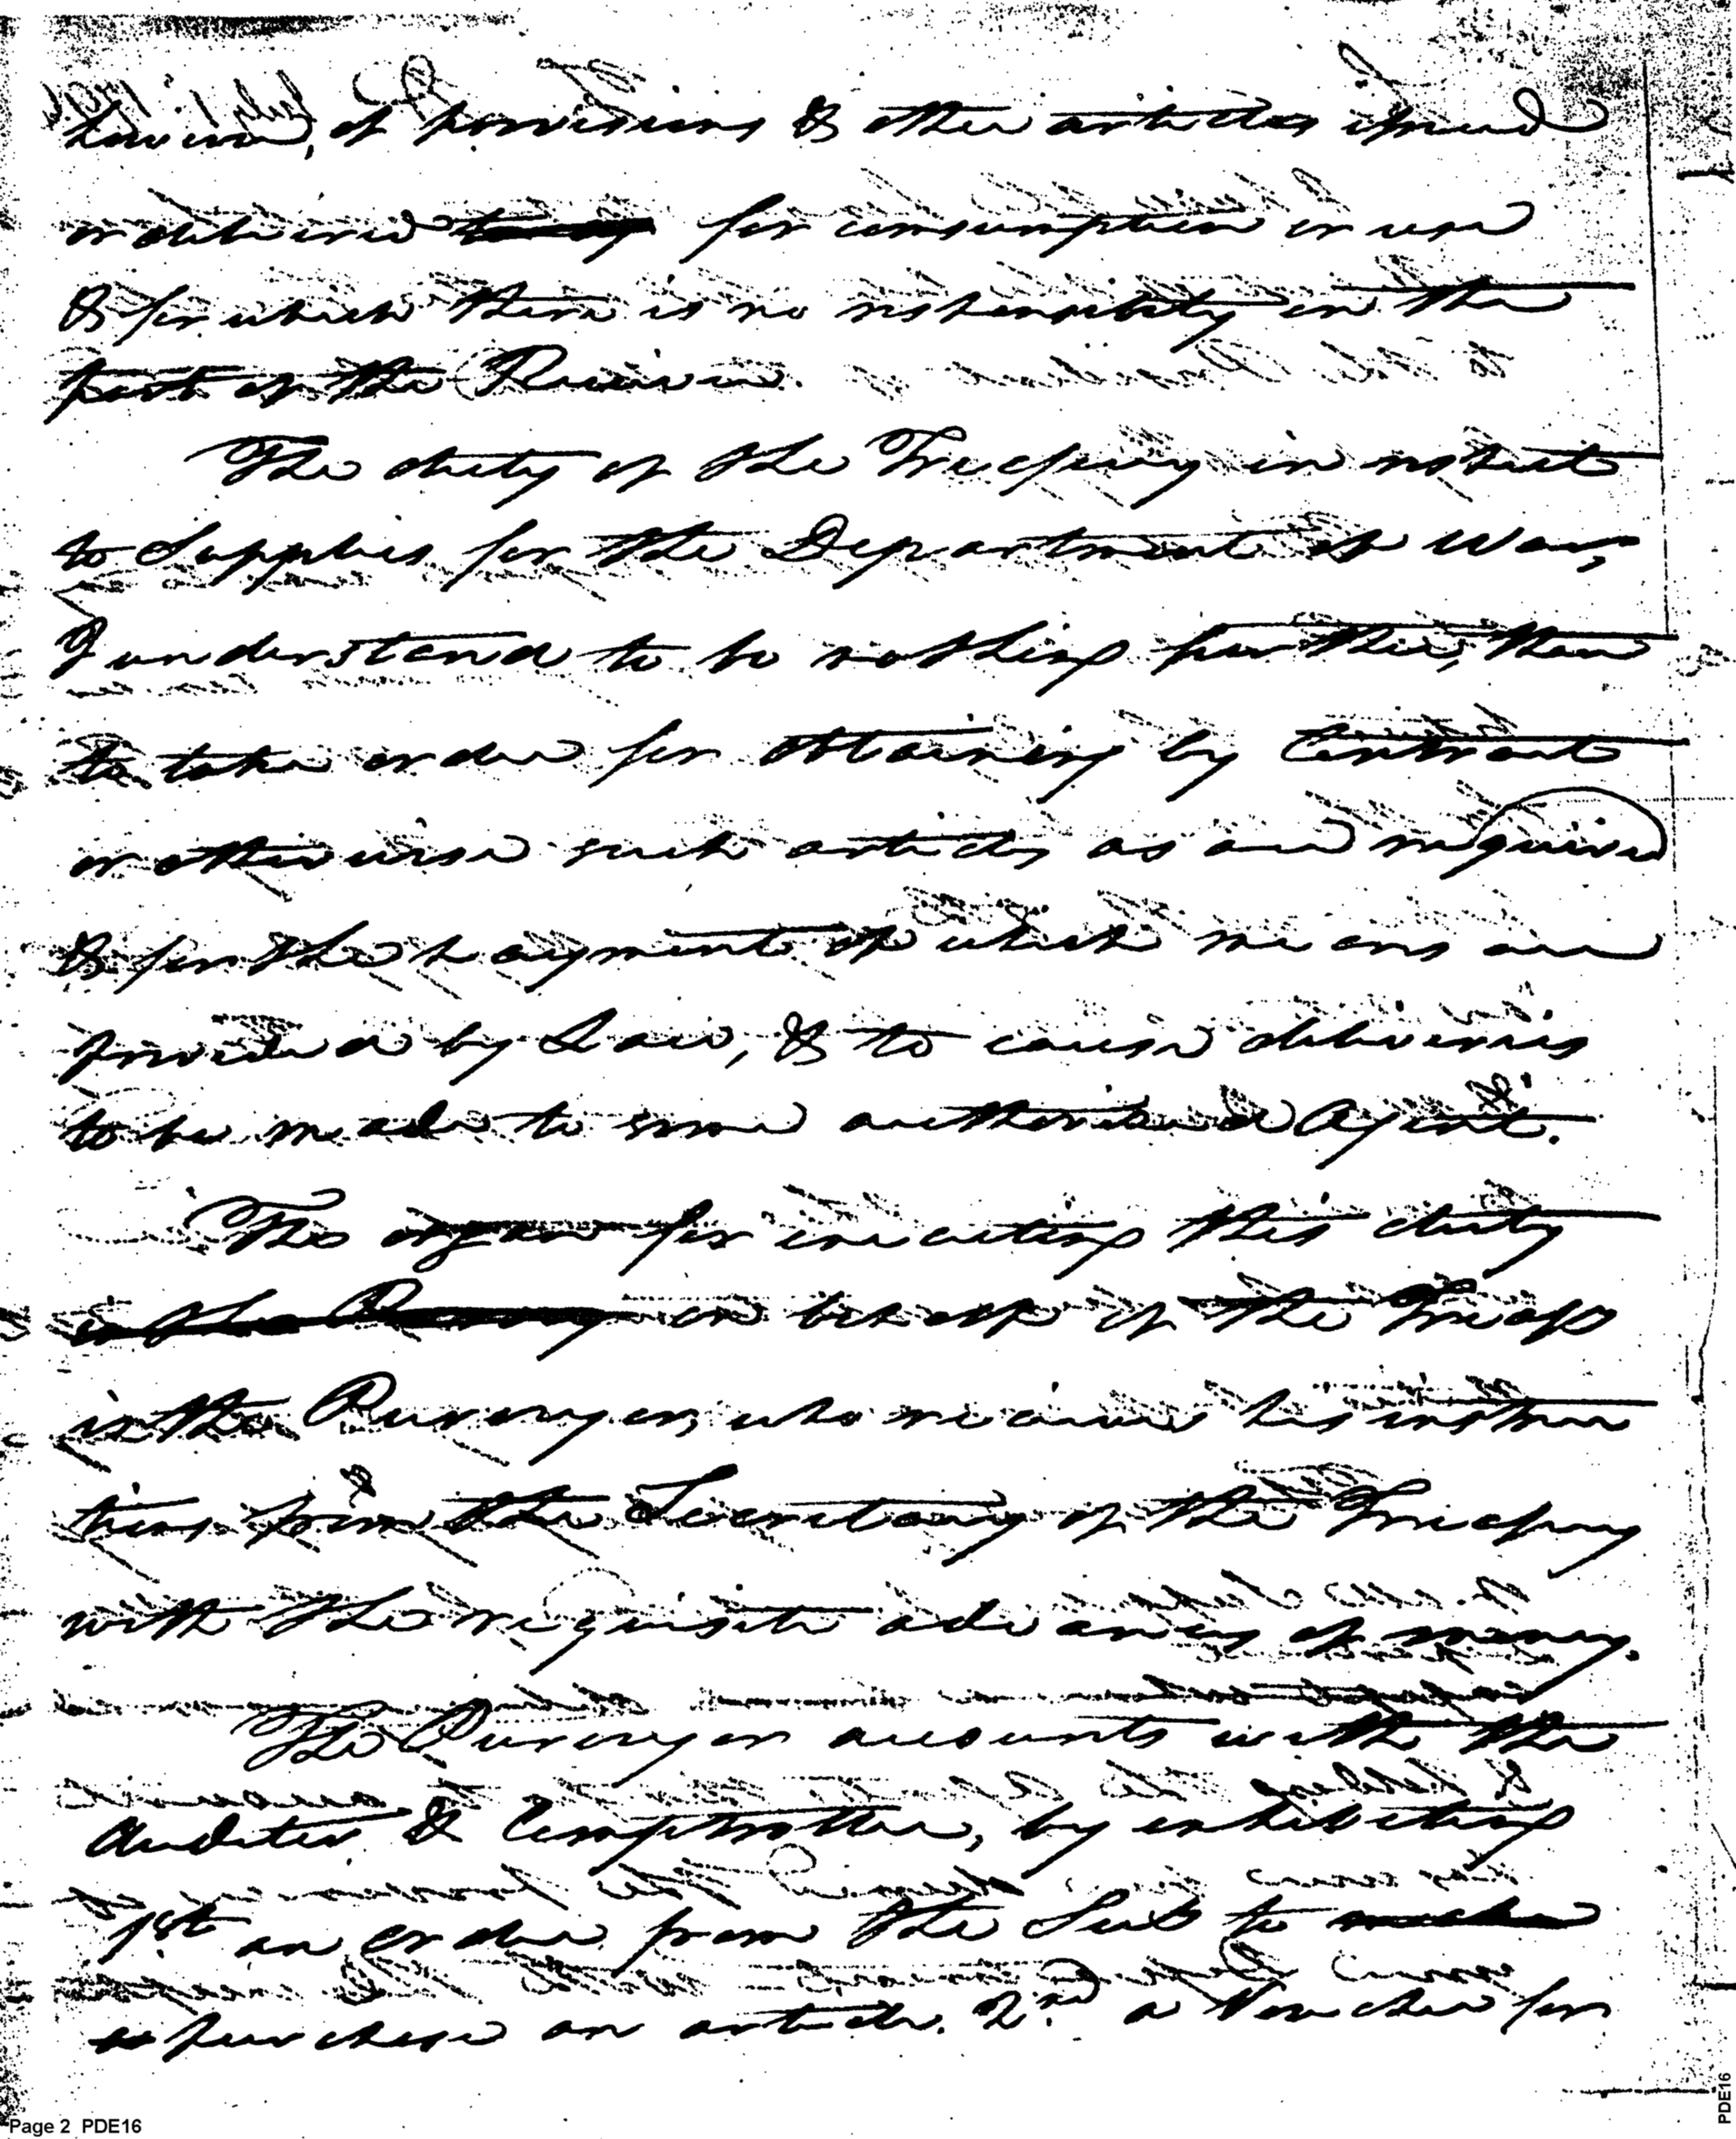 however, of provisions & other articles issued
or delivered for consumption or use
& for which there is no responsibility on the
part of the Receiver.
The duty of the Treasury in respect
to Supplies for the Department of War,
I understand to be nothing further, than
to take order for obtaining by Contract
or otherwise such articles as are required
& for the payment of which means are
provided by Law, & to cause deliveries
to be made to some authorised Agent.
The organ for executing this duty
is the Purveyor on behalf of the Treasy
is the Purveyor, who receives his instruc
tions from the Secretary of the Treasury
with the requisite advances of money.
The Purveyor accounts with the
Auditor & Comptroller, by exhibiting
1st an order from the Sect to make
purchase an article. 2nd a Voucher for
Page 2 PDE16
PDE16